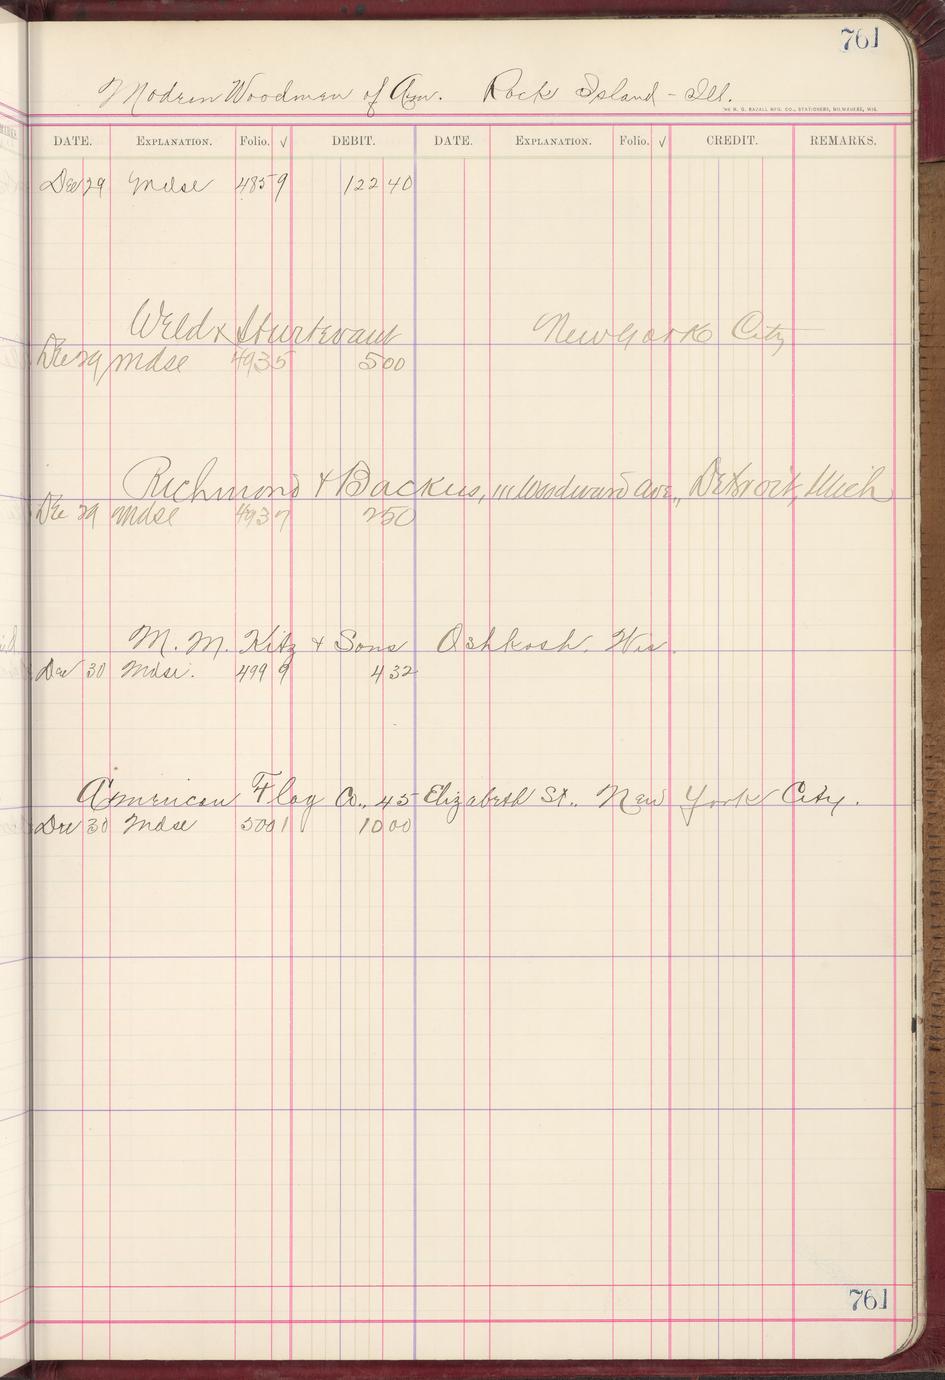 761
Modern Woodmen of Am. Rock Island - Ill.
DATE. EXPLANATION. Folio. √ DEBIT. DATE. EXPLANATION. Folio. √ CREDIT. REMARKS.
Dec 29 Mdse 4859 122 40
Weld & Sturtevant New York City
Dec 29 Mdse 4935 5 00
Richmond & Backus, 111 Woodward Ave., Detroit, Mich
Dec 29 Mdse 4937 2 50
M. M. Kitz & Sons Oshkosh, Wis.
Dec 30 Mdse. 4999 4 32
American Flag Co., 45 Elizabeth St., New York City.
Dec 30 Mdse 5001 10 00
761